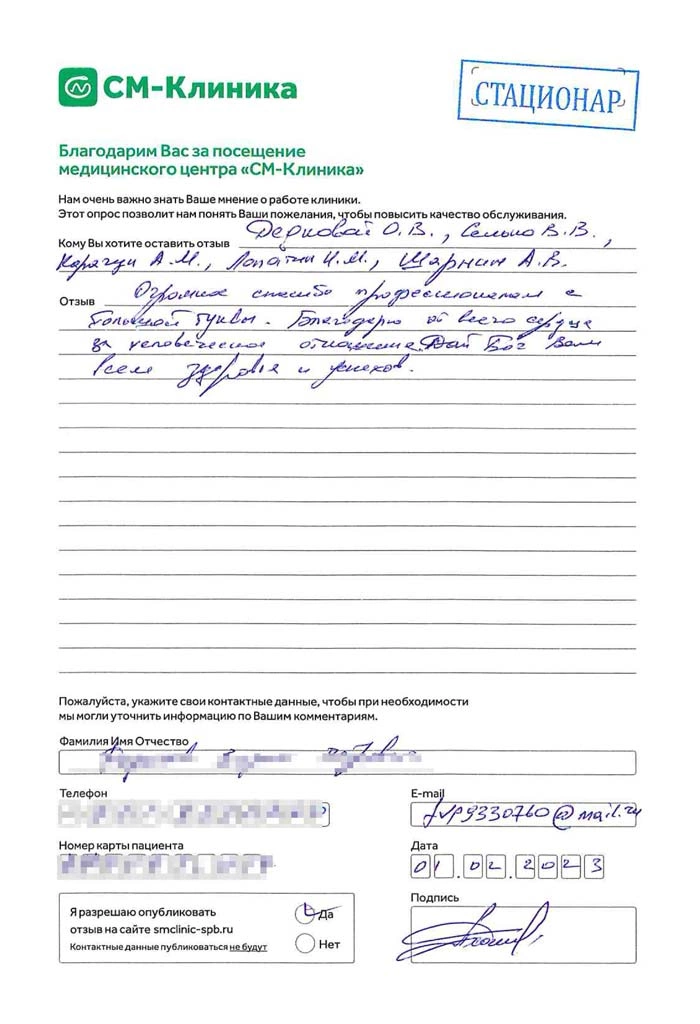 СМ-Клиника
СТАЦИОНАР
Благодарим Вас за посещение
медицинского центра «СМ-Клиника»
Нам очень важно знать Ваше мнение о работе клиники.
Этот опрос позволит нам понять Ваши пожелания, чтобы повысить качество обслуживания.
Кому Вы хотите оставить отзыв Дерковай О.В., В.В.,
Карачун А.М., Лопатин И.М., Шарнин А.В.
Отзыв Огромное спасибо профессионалам с
большой буквы. Благодарю от всего сердца
за человеческое отношение. Дай Бог Вам
всем здоровья и успехов.
Пожалуйста, укажите свои контактные данные, чтобы при необходимости
мы могли уточнить информацию по Вашим комментариям.
Фамилия Имя Отчество
Телефон
E-mail
9330760@mail.ru
Номер карты пациента
Дата
01.02.2023
Я разрешаю опубликовать
отзыв на сайте smclinic-spb.ru
Контактные данные публиковаться не будут
Да
Нет
Подпись